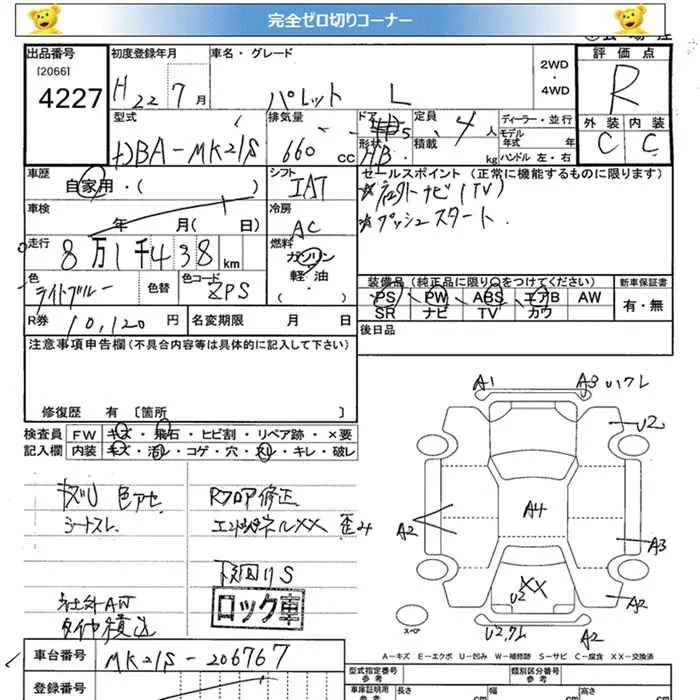 完全ゼロ切りコーナー
出品番号
[2066]
4227
初度登録年月
H22 7月
車名・グレード
パレット L
2WD
・
4WD
評価点
R
外装 内装
C C
型式
DBA-MK21S
排気量
660 cc
ドア
5
形状
H.B
定員
4人
積載
kg
ディーラー・並行
モデル
年式 年
ハンドル 左・右
車歴
自家用・( )
シフト
IAT
セールスポイント(正常に機能するものに限ります)
☆社外ナビ(TV)
☆プッシュスタート.
車検
年 月(日)
冷房
AC
走行
8万1千438 km
燃料
ガソリン
軽・油
( ・ )
色
ライトブルー
色替
色コード
ZPS
装備品(純正品に限り○をつけてください)
PS PW ABS エアB AW
SR ナビ TV カワ
新車保証書
有・無
R券 10,120円
名変期限 月 日
後日品
注意事項申告欄(不具合内容等は具体的に記入して下さい)
修復歴 有 [箇所 ]
検査員 FW キズ・飛石・ヒビ割・リペア跡・×要
記入欄 内装 キズ・汚レ・コゲ・穴・スレ・キレ・破レ
色アセ
シートスレ
Rフロア修正
エンドパネルXX 歪み
下回りS
ロック車
A1
A3
U2
A4
A2
A3
XX
U2
A2
スペア
A2
A-キズ E-エクボ U-凹み W-補修跡 S-サビ C-腐食 XX-交換済
車台番号 MK21S-206767
登録番号
型式指定番号
参考
類別区分番号
参考
車庫証明用
参考
長さ
cm
幅
cm
高さ
cm